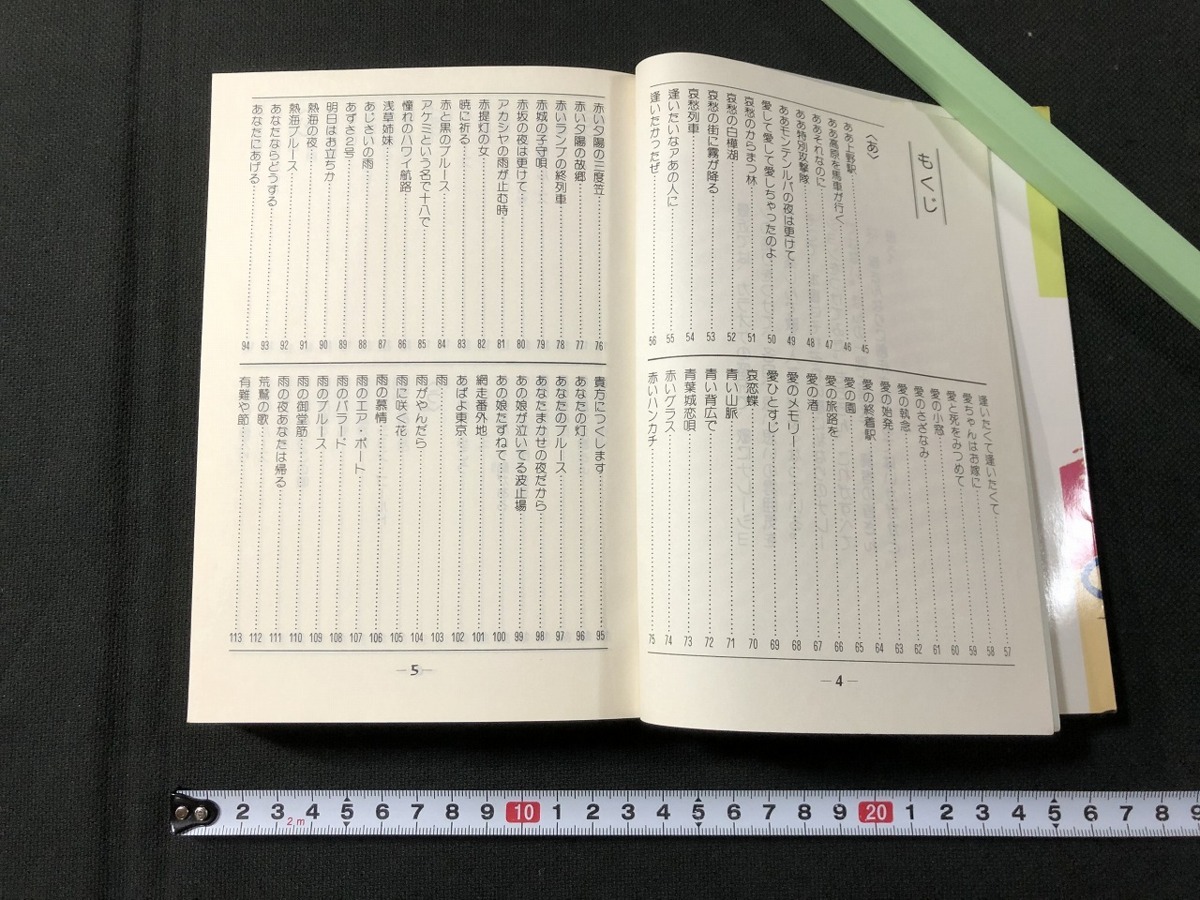 もくじ
〈あ〉
ああ上野駅 45
ああ高原を馬車が行く 46
ああそれなのに 47
ああ特別攻撃隊 48
ああモンテンルパの夜は更けて 49
愛して愛して愛しちゃったのよ 50
哀愁のからまつ林 51
哀愁の白樺湖 52
哀愁の街に霧が降る 53
哀愁列車 54
逢いたいなァあの人に 55
逢いたかったぜ 56
逢いたくて逢いたくて 57
愛ちゃんはお嫁に 58
愛と死をみつめて 59
愛の小窓 60
愛のさざなみ 61
愛の執念 62
愛の始発 63
愛の終着駅 64
愛の園 65
愛の旅路を 66
愛の渚 67
愛のメモリー 68
愛ひとすじ 69
哀恋蝶 70
青い山脈 71
青い背広で 72
青葉城恋唄 73
赤いグラス 74
赤いハンカチ 75
—4—
赤い夕陽の三度笠 76
赤い夕陽の故郷 77
赤いランプの終列車 78
赤城の子守唄 79
赤坂の夜は更けて 80
アカシヤの雨が止む時 81
赤提灯の女 82
暁に祈る 83
赤と黒のブルース 84
アケミという名で十八で 85
憧れのハワイ航路 86
浅草姉妹 87
あじさいの雨 88
あずさ2号 89
明日はお立ちか 90
熱海の夜 91
熱海ブルース 92
あなたならどうする 93
あなたにあげる 94
貴方につくします 95
あなたの灯 96
あなたのブルース 97
あなたまかせの夜だから 98
あの娘が泣いてる波止場 99
あの娘たずねて 100
網走番外地 101
あばよ東京 102
雨 103
雨がやんだら 104
雨に咲く花 105
雨の慕情 106
雨のエア・ポート 107
雨のバラード 108
雨のブルース 109
雨の御堂筋 110
雨の夜あなたは帰る 111
荒鷲の歌 112
有難や節 113
—5—
2 3 4 5 6 7 8 9 10 1 2 3 4 5 6 7 8 9 20 1 2 3 4 5 6 7 8 9
2m